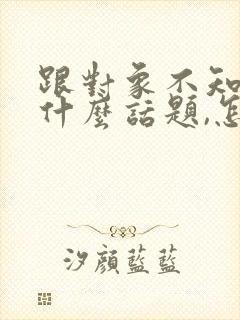 跟對象不知
什麼話題,怎
汐顔藍藍